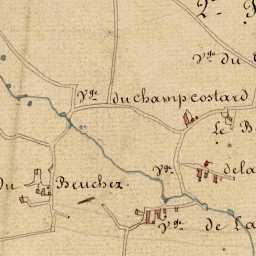 V.ge du
V.ge du champ costard
Le B
V.ge dela
Du Beuchez
V.ge de la